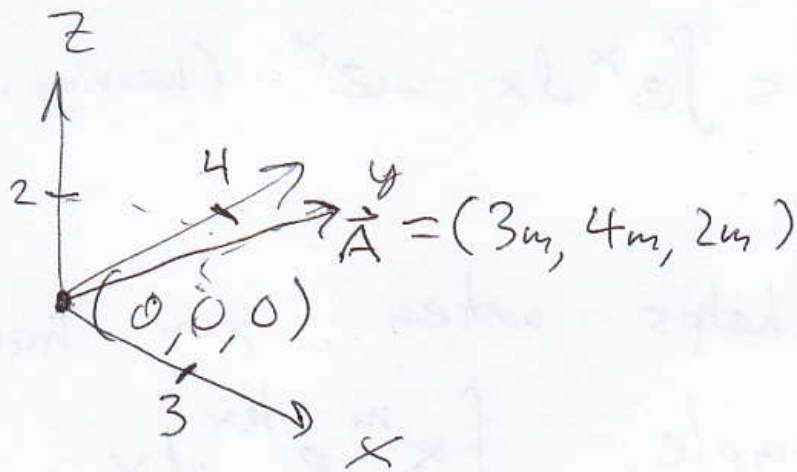 Z
4
2
y
A⃗ = (3m, 4m, 2m)
(0,0,0)
3
x